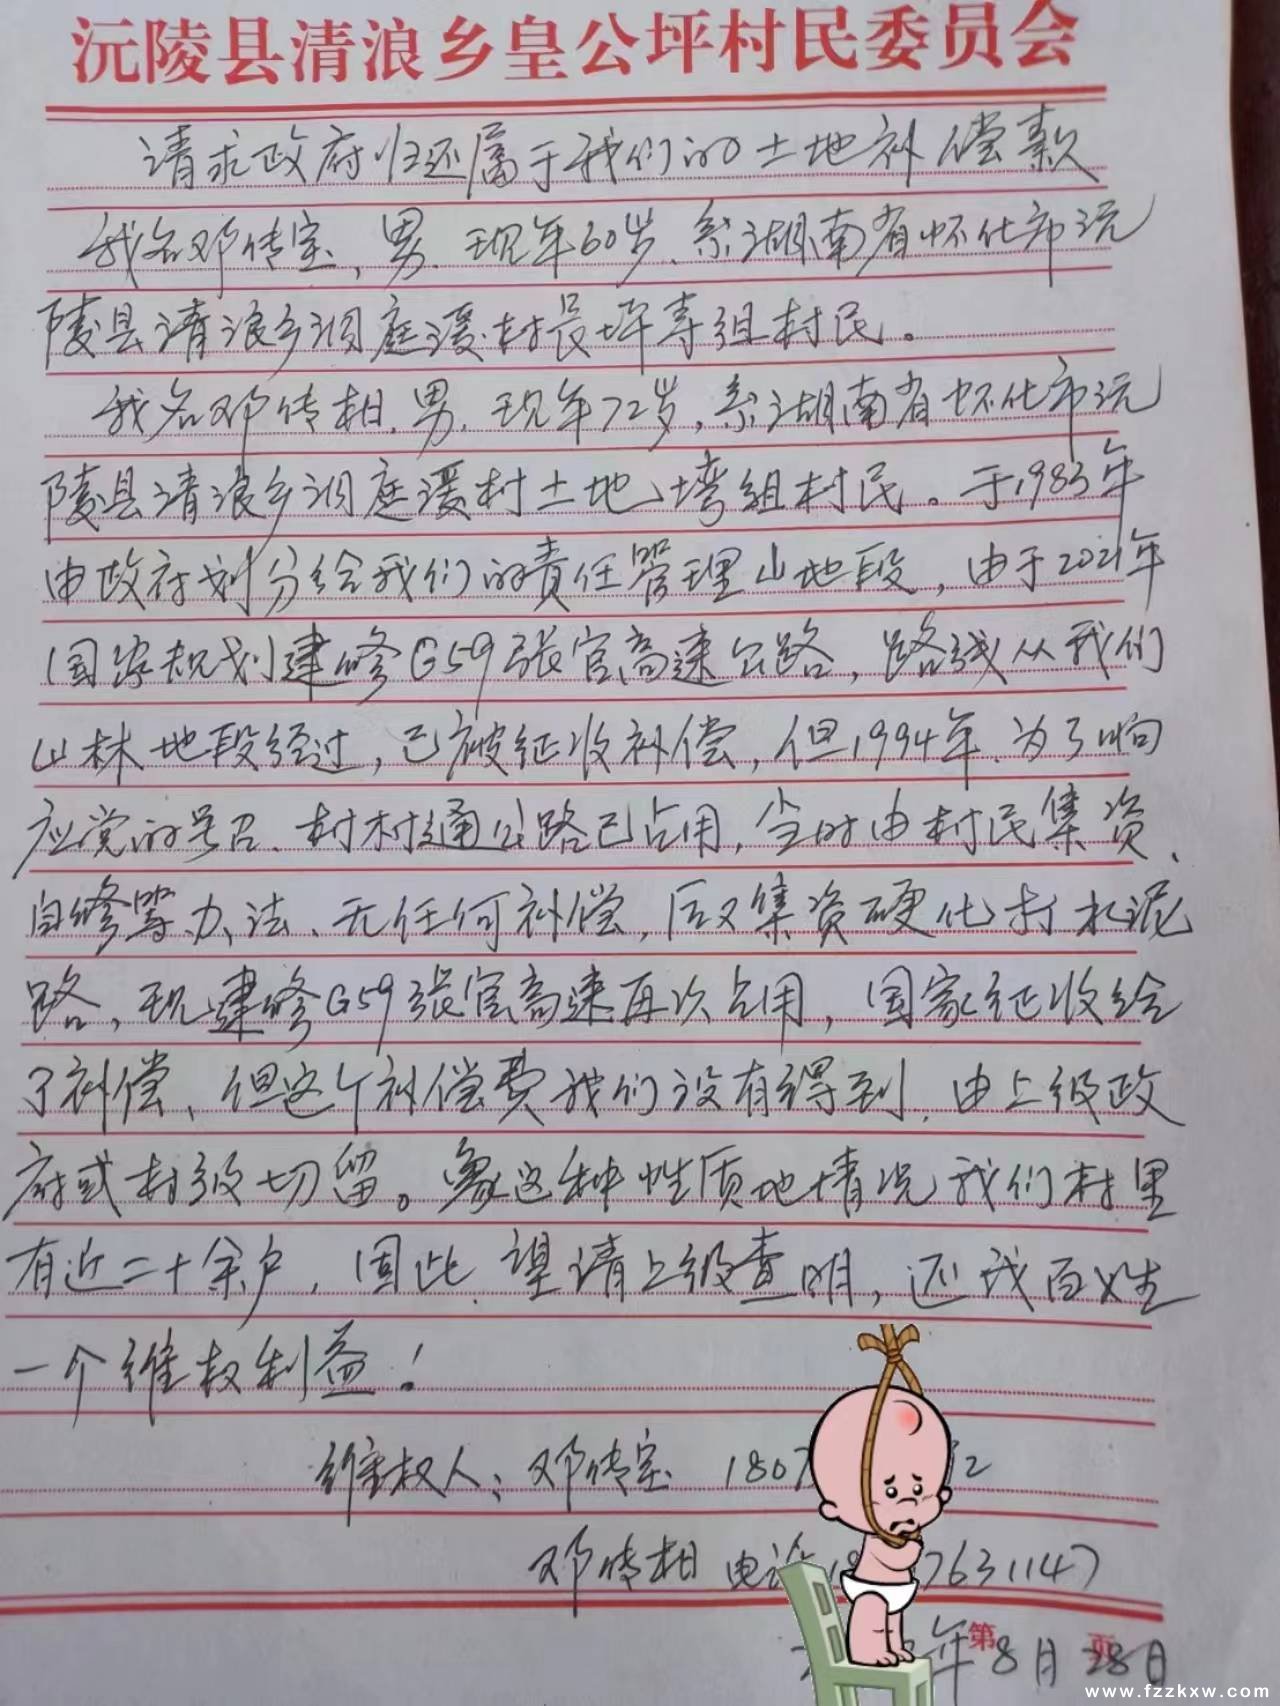 沅陵县清浪乡皇公坪村民委员会
请求政府归还属于我们的土地补偿款
我名邓传宝，男，现年60岁，系湖南省怀化市沅
陵县清浪乡洞庭溪村长坪寺组村民。
我名邓传相，男，现年72岁，系湖南省怀化市沅
陵县清浪乡洞庭溪村土地塆组村民。于1983年
由政府划分给我们的责任管理山地段，由于2021年
国家规划建修G59张官高速公路，路线从我们
山林地段经过，已被征收补偿，但1994年、为了响
应党的号召、村村通公路已占用，当时由村民集资、
自修等办法、无任何补偿，后又集资硬化打水泥
路，现建修G59张官高速再次占用，国家征收给
了补偿、但这个补偿费我们没有得到，由上级政
府或村级切留。象这种性质地情况我们村里
有近二十余户，因此，望请上级查明，还我百姓
一个维权利益！
维权人：邓传宝 1807 2
邓传相 电话18 7631147
年 第 8月28日 页
www.fzzkxw.com